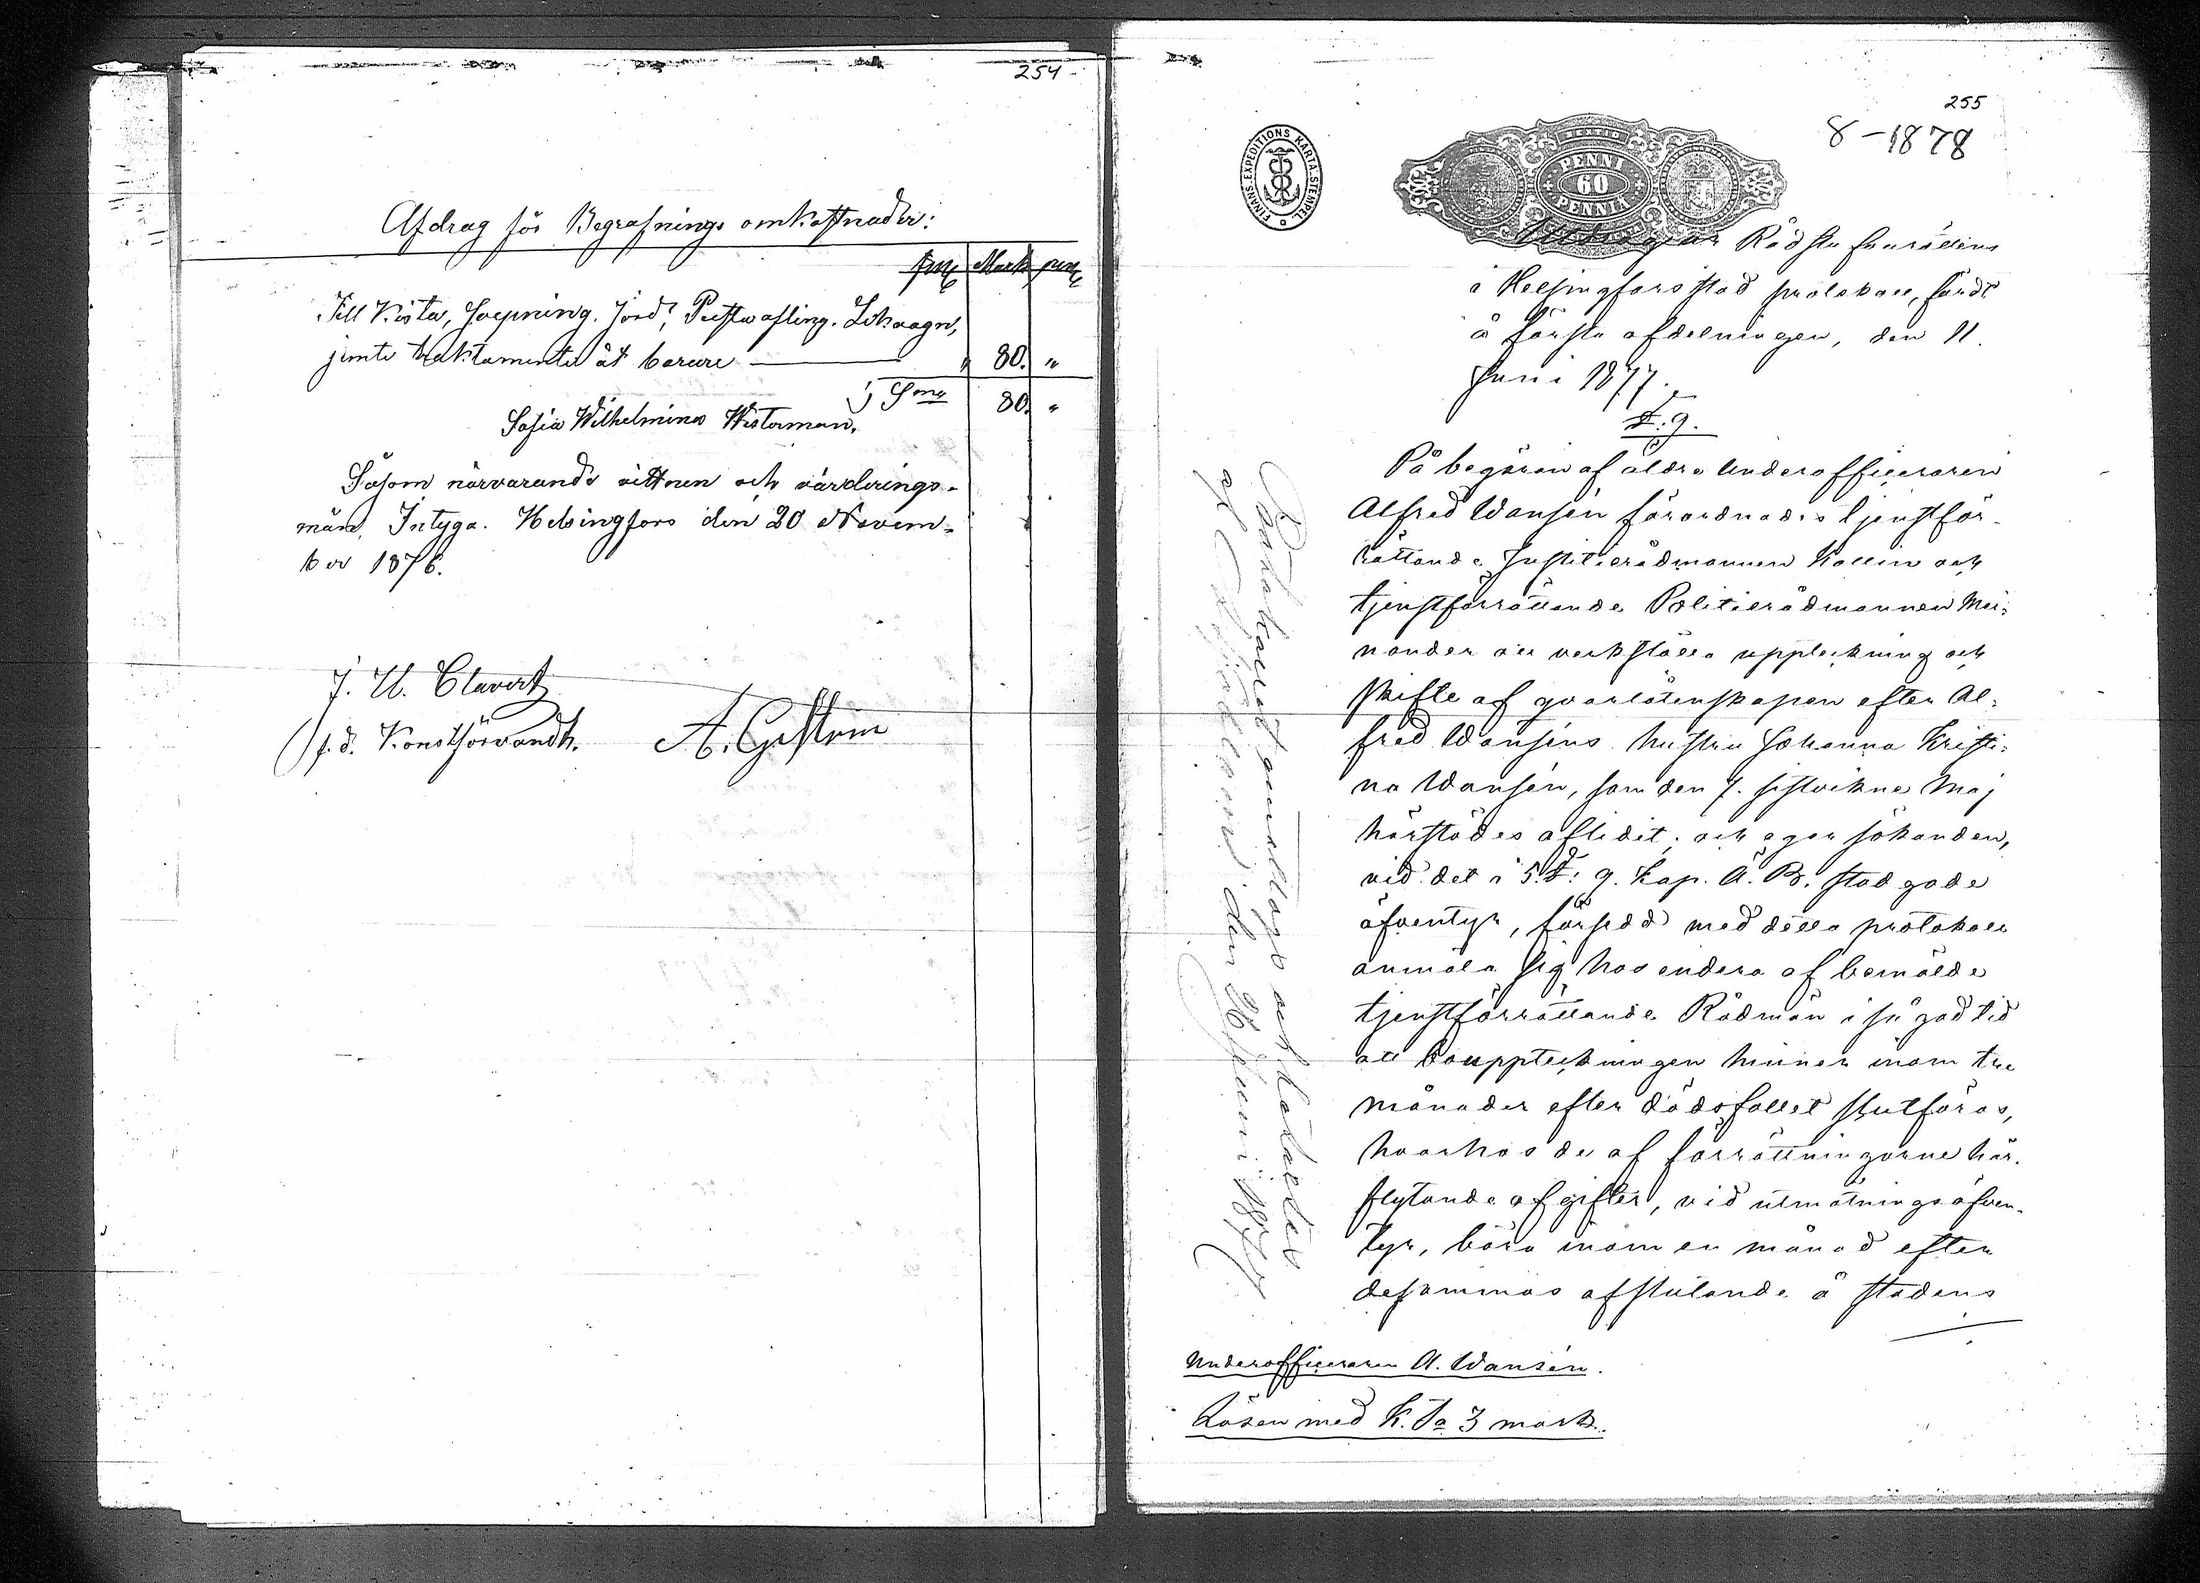 254
Afdrag för Begrafnings omkostnader:
Fmk Mark pnni
Till Kista, svepning, jord, Likvagn,
jemte traktamente åt bärare — " 80. "
Sma 80. "
Sofia Wilhelmina Westerman.
Såsom närvarande vittnen och värderings-
män, Intyga. Helsingfors den 20 Novem-
ber 1876.
J. U. Clavert
f.d. Konstförvandt. A. Gestrin
255
8-1878
FINANS-EXPEDITIONS KARTA-STEMPEL
PENNI
60
PENNIÄ
Utdrag ur Rådstufvurättens
i Helsingfors stad protokoll, fördt
å första afdelningen, den 11.
Juni 1877.
§. 9.
På begäran af äldre Underofficeraren
Alfred Wansén förordnades tjenstför-
rättande Justitierådmannen Kollin och
tjenstförrättande Politierådmannen Mei-
nander att verkställa uppteckning och
skifte af qvarlåtenskapen efter Al-
fred Wanséns hustru Johanna Kristi-
na Wansén, som den 7. sistvikne Maj
härstädes aflidit; och eger sökanden,
vid det i 5. §. 9. Kap. Ä. B. stadgade
äfventyr, försedd med detta protokoll
anmäla sig hos endera af bemälde
tjenstförrättande Rådmän i så god tid
att bouppteckningen hinner inom tre
månader efter dödsfallet slutföras,
hvarhos de af förrättningarne här-
flytande afgifter, vid utmätningsäfven-
tyr, böra inom en månad efter
desammas afslutande å stadens
Underofficeraren A. Wansén.
Lösen med K. Sa 3 mark.
Protokollet emottagit
den Juni 1877